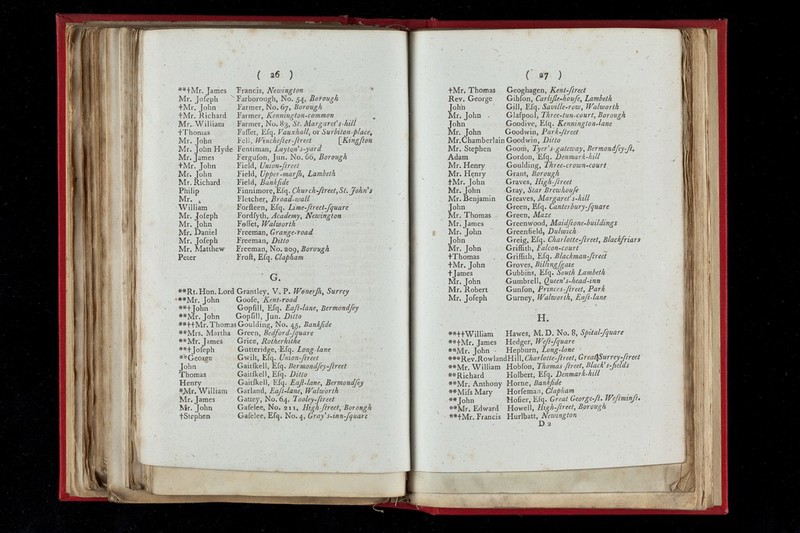 ( 26 )
**†Mr. James Francis, Newington
Mr. Joſeph Farborough, No. 54, Borough
†Mr. John Farmer, No. 67, Borough
†Mr. Richard Farmer, Kennington-common
Mr. William Farmer, No. 83, St. Margaret's-hill
†Thomas Faſſet, Eſq. Vauxhall, or Surbiton-place,
Mr. John Fell, Wincheſter-ſtreet [Kingſton
Mr. John Hyde Fentiman, Layton's-yard
Mr. James Ferguſon, Jun. No. 66, Borough
†Mr. John Field, Union-ſtreet
Mr. John Field, Upper-marſh, Lambeth
Mr. Richard Field, Bankſide
Philip Finnimore, Eſq. Church-ſtreet, St. John's
Mr. Fletcher, Broad-wall
William Forſteen, Eſq. Lime-ſtreet-ſquare
Mr. Joſeph Fordſyth, Academy, Newington
Mr. John Foſſet, Walworth
Mr. Daniel Freeman, Grange-road
Mr. Joſeph Freeman, Ditto
Mr. Matthew Freeman, No. 209, Borough
Peter Froſt, Eſq. Clapham
G.
**Rt. Hon. Lord Grantley, V. P. Wonerſh, Surrey
**Mr. John Gooſe, Kent-road
**†John Gopſill, Eſq. Eaſt-lane, Bermondſey
**Mr. John Gopſill, Jun. Ditto
**††Mr. Thomas Goulding, No. 45, Bankſide
**Mrs. Martha Green, Bedford-ſquare
**Mr. James Grice, Rotherhithe
**†Joſeph Gutteridge, Eſq. Long-lane
**George Gwilt, Eſq. Union-ſtreet
John Gaitſkell, Eſq. Bermondſey-ſtreet
Thomas Gaitſkell, Eſq. Ditto
Henry Gaitſkell, Eſq. Eaſt-lane, Bermondſey
*Mr. William Garland, Eaſt-lane, Walworth
Mr. James Gattey, No. 64, Tooley-ſtreet
Mr. John Gaſelee, No. 211, High-ſtreet, Borough
†Stephen Gaſelee, Eſq. No. 4, Gray's-inn-ſquare
( 27 )
†Mr. Thomas Geoghagen, Kent-ſtreet
Rev. George Gibſon, Carliſle-houſe, Lambeth
John Gill, Eſq. Saville-row, Walworth
Mr. John Glaſpool, Three-tun-court, Borough
John Goodive, Eſq. Kennington-lane
Mr. John Goodwin, Park-ſtreet
Mr. Chamberlain Goodwin, Ditto
Mr. Stephen Goom, Tyer's gateway, Bermondſey-ſt.
Adam Gordon, Eſq. Denmark-hill
Mr. Henry Goulding, Three-crown-court
Mr. Henry Grant, Borough
†Mr. John Graves, High-ſtreet
Mr. John Gray, Star Brewhouſe
Mr. Benjamin Greaves, Margaret's-hill
John Green, Eſq. Canterbury-ſquare
Mr. Thomas Green, Maze
Mr. James Greenwood, Maidſtone-buildings
Mr. John Greenfield, Dulwich
John Greig, Eſq. Charlotte-ſtreet, Blackfriars
Mr. John Griffith, Falcon-court
†Thomas Griffith, Eſq. Blackman-ſtreet
†Mr. John Groves, Billingſgate
†James Gubbins, Eſq. South Lambeth
Mr. John Gumbrell, Queen's-head-inn
Mr. Robert Gunſon, Princes-ſtreet, Park
Mr. Joſeph Gurney, Walworth, Eaſt-lane
H.
**††William Hawes, M. D. No. 8, Spital-ſquare
**†Mr. James Hedger, Weſt-ſquare
**Mr. John Hepburn, Long-lane
***Rev. Rowland Hill, Charlotte-ſtreet, Great Surrey-ſtreet
**Mr. William Hobſon, Thomas ſtreet, Black's-fields
**Richard Holbert, Eſq. Denmark-hill
**Mr. Anthony Horne, Bankſide
**Miſs Mary Horſeman, Clapham
**John Hoſier, Eſq. Great George-ſt. Weſtminſt.
**Mr. Edward Howell, High-ſtreet, Borough
**†Mr. Francis Hurlbatt, Newington
D 2